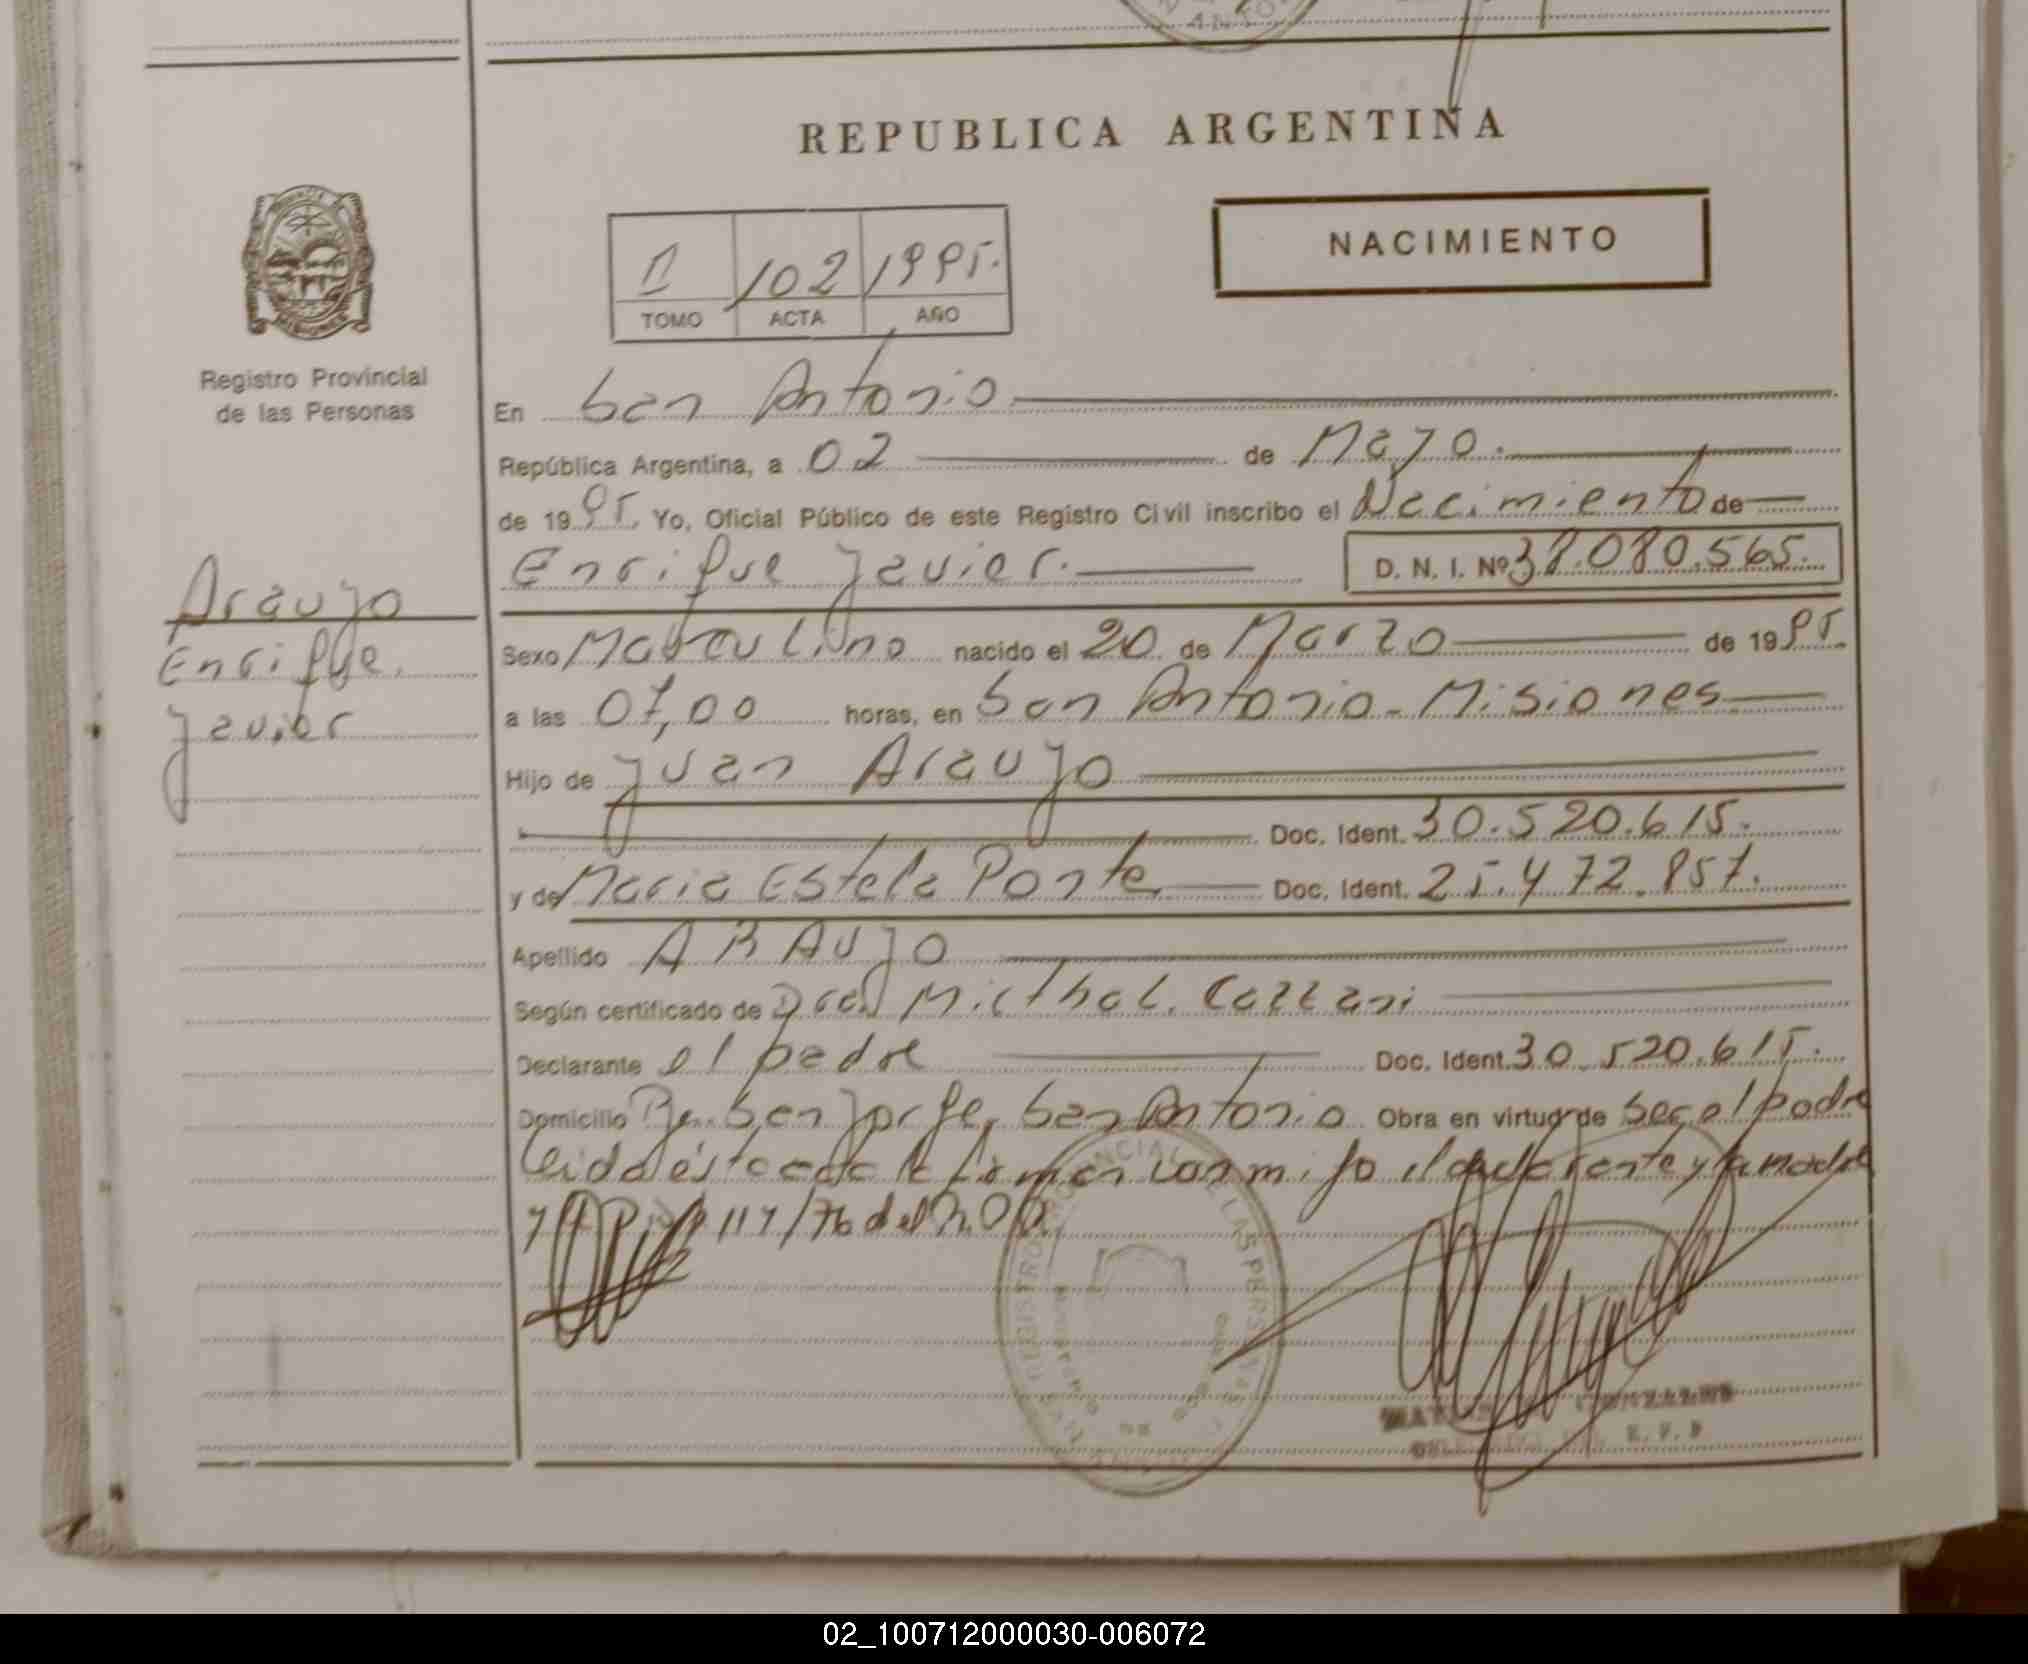 REPUBLICA ARGENTINA
NACIMIENTO
102 1995.
TOMO ACTA AÑO
Registro Provincial
de las Personas
En San Antonio
República Argentina, a 02 de Mayo.
de 1995. Yo, Oficial Público de este Registro Civil inscribo el Nacimiento de
Enrique Javier. D. N. I. Nº 38.080.565.
Araujo
Enrique
Javier
Sexo Masculino nacido el 20 de Marzo de 1995.
a las 07,00 horas, en San Antonio - Misiones
Hijo de Juan Araujo
Doc. Ident. 30.520.615.
y de Maria Estela Ponte Doc. Ident. 25.472.857.
Apellido ARAUJO
Según certificado de Dra. Cazzani
Declarante el padre Doc. Ident. 30.520.615.
Domicilio San Jorge, San Antonio Obra en virtud de ser el padre
Leida ésta acta la firman conmigo el declarante y la madre
117/76 del
REGISTRO PROVINCIAL DE LAS PERSONAS
GONZALES
02_100712000030-006072